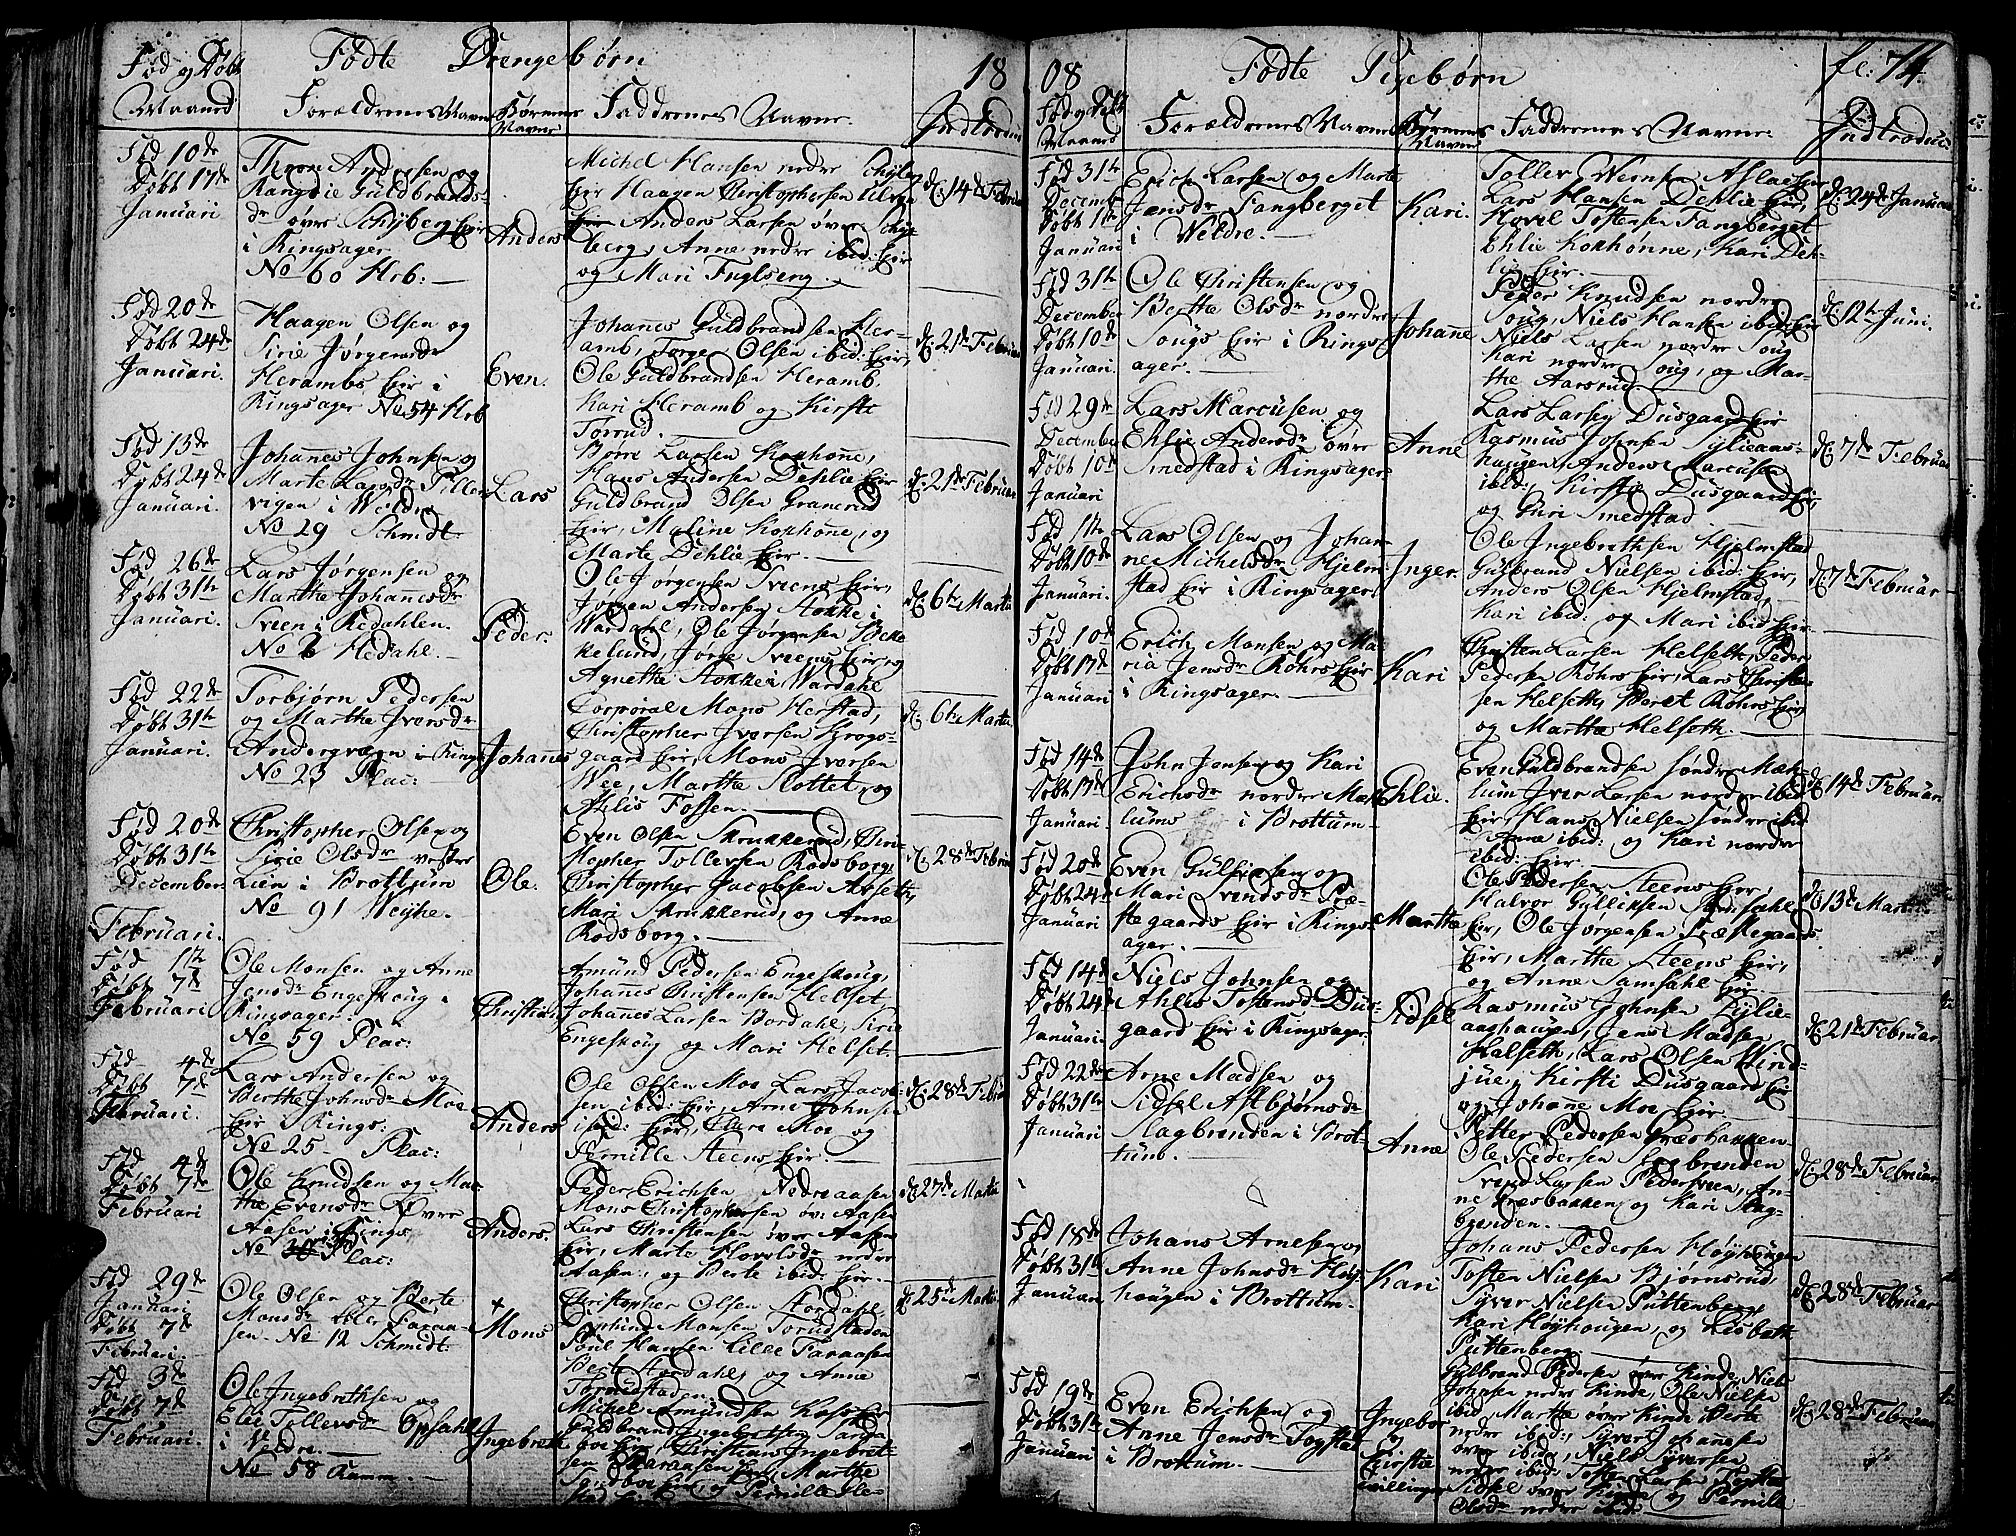 Fødte Drengebørn 18
Fød og Døbt
Maaned
Forældrenes Navne
Børnenes
Navne
Faddrenes Navne.
Introduc
Fød 10de
Døbt 17de
Januari
Thore Andersen og
Rangdie Guldbrands-
dr over
i Ringsager
No 60 Hrb:
Anders
Michel Hansen nedre
Haagen Christophersen
Anders Larsen over
berg, Anne nedre ibid:
og Mari Fuglserg
d: 14de Februar
Fød 20de
Døbt 24de
Januari.
Haagen Olsen og
Sirie Jørgensdr
Herambs Eier i
Ringsager No 54 Hrb
Even.
Johannes Guldbrandsen Her-
amb, Torge Olsen ibid: Eier,
Ole Guldbrandsen Heramb,
Kari Heramb og Kirsti
Torrud.
d: 21de Februar
Fød 13de
Døbt 24de
Januari.
Johannes Johnsen og
Marte Larsdr Tiller-
vigen i Veldre
No 29 Schmdt:
Lars
Børre Larsen Kophone,
Hans Andersen Dehlie Eier
Guldbrand Olsen Granerud
Eier, Maline Kophone, og
Marte Dehlie Eier.
d: 21de Februar
Fød 26de
Døbt 31te
Januari.
Lars Jørgensen og
Marthe Johannesdr
Sveen i Redahlen.
No 2 Hedahl.
Peder.
Ole Jørgensen Sveens Eier,
Jørgen Andersen Stokke i
Wardahl, Ole Jørgensen Bek-
kelund, Jørge Sveens Eier, og
Agnethe Stokke i Wardahl
d: 6te Martii
Fød 22de
Døbt 31te
Januari.
Torbjørn Pedersen
og Marthe Iversdr
i Rings:
No 23 Plac:
Johannes
Corporal Mons Herstad,
Christopher Iversen Skrogs-
gaard Eier, Mons Iversen
Wee, Marthe Slottet, og
Ahlis Fossen.
d: 6te Martii
Fød 20de
Døbt 31te
December.
Christopher Olsen og
Sirie Olsdr vestre
Lien i Brottum
No 91 Weyhe.
Ole.
Even Olsen Skrukkerud, Chri-
stopher Tollevsen Rodsborg,
Christopher Jacobsen
Mari Skrukkerud, og Anne
Rodsborg.
d: 28de Februar
Februari.
Fød 1te
Døbt 7de
Februari
Ole Monsen og Anne
Jensdr Engeskoug i
Ringsager.
No 59 Plac:
Christian.
Amund Pedersen Engeskoug,
Johannes Christensen Helset
Johannes Larsen Bordahl, Sirie
Engeskoug og Mari Helset.
Fød 4de
Døbt 7de
Februari.
Lars Andersen og
Berthe Johnsdr Moe
Eier i Rings:
No 25 Plac:
Anders
Ole Olsen Moe, Lars Jacob-
sen ibid: Eier, Arne Johnsen
ibid: Eier, Clara Moe og
Pernille Steens Eier.
d: 28de Februar
Fød 4de
Døbt 7de
Februari
Ole Knudsen og Mar-
the Evensdr Øvre
Aasen i Rings
No Plac:
Anders.
Peder Erichsen Nedreaasen
Mons Christophersen øv: Aasen
Lars Christensen øvre Aasen
Eier, Marte Hovelsdr nedre
Aasen, og Berte ibid: Eier.
d: 27de Martii
Fød 29de
Januari
Døbt 7de
Februari.
Ole Olsen og Berte
Monsdr Faraa-
sen. No 12 Schmidt:
Mons
Christopher Olsen Stordahl,
Monsen Torudstaden
Poul Hansen Lille Faraasen
Berte Stordahl, og Anne
Torudstaden.
d: 25de Martii
Fød 3de
Døbt 7de
Februari.
Ole Ingebrethsen og
Elie Tollevsdr Opsahl
i Veldre.
No 58 Ramm.
Ingebreth
Michel Amundsen
Guldbrand Ingebrethsen
Christian Ingebret-
sen Eier, Marthe
Eier, og Pernille
08 Fødte Pigebørn fl: 74.
Fød og Døbt
Maaned
Forældrenes Navne
Børnenes
Navne
Faddrenes Navne.
Introduc
Fød 31te
Decemb
Døbt 1te
Januari
Erich Larsen og Marte
Jensdr Tangberget
i Veldre.
Kari.
Tollev Aflaesen,
Lars Hansen Dehlie Eier,
Hovel Tostensen Tangberget
Ehlie Kophonne, Kari Deh-
lie Eier.
d: 24de Januar
Fød 31te
December
Døbt 10de
Januari.
Ole Christensen og
Berthe Olsdr nordre
Sougs Eier i Rings-
ager.
Johanne
Peder Knudsen nordre
Soug, Niels Hansen ibid: Eier
Niels Larsen nordre Soug
Kari nordre Soug, og Mar-
the Aarsrud.
d: 12te Juni.
Fød 29de
December
Døbt 10de
Januari
Lars Marcusen og
Ehlie Andersdr øvre
Smedstad i Ringsager
Anne
Lars Larsen Dusgaard Eier
Rasmus Johnsen
haugen, Anders Larcusen
ibid: Kirstie Dusgaard Eier,
og Guri Smedstad.
d: 7de Februar
Fød 1te
Døbt 10de
Januari.
Lars Olsen og Johan-
ne Michelsdr Hjelm-
stad Eier i Ringsager
Inger.
Ole Ingebrethsen Hjelmstad
Gulbrand Nielsen ibid: Eier,
Anders Olsen Hjelmstad,
Kari ibid: og Mari ibid: Eier.
d: 7de Februar
Fød 10de
Døbt 17de
Januari
Erich Monsen og Ma-
ria Jensdr Rohrs Eier
i Ringsager.
Kari
Christen Larsen Helseth, Peder
Pedersen Rohrs Eier, Lars Christen-
sen Helseth, Beret Rohrs Eier,
og Marthe Helseth.
Fød 14de
Døbt 17de
Januari
John Jonsen og Kari
Erichsdr nordre Mæh-
lums i Brottum
Ehlie.
Even Guldbrandsen søndre Mæh-
lum Iver Larsen nordre ibid
Eier, Hans Nielsen søndre ibid
Anne ibid: og Kari nordre
ibid: Eier.
d: 14de Februar
Fød 20de
Døbt 24de
Januari
Even Gullicsen og
Mari Svendsdr Præ-
stegaards Eier i Rings-
ager.
Marthe
Ole Pedersen Steens Eier,
Halvor Gullicksen Samsahl
Eier, Ole Jørgensen Præstegaards
Eier, Marthe Steens Eier,
og Anne Samsahl Eier
d: 13de Martii
Fød 14de
Døbt 24de
Januari.
Niels Johnsen og
Ahlis Tostensdr Dus-
gaard Eier i Ringsager
Sidsel
Rasmus Johnsen
haugen, Jens Madsen
Halseth, Lars Olsen Wind-
jue, Kirsti Dusgaard Eier
og Johanne Moe Eier.
d: 21de Februar
Fød 22de
Døbt 31te
Januari
Arne Madsen og
Sidsel Astbjørnsdr
Slagbrenden i Brot-
tum.
Anne
Petter Pedersen Græsbakken
Ole Pedersen Slagbrenden
Svend Larsen Pedersveen, An-
ne Græsbakken, og Kari Slag-
brenden.
d: 28de Februar
Fød 18de
Døbt 31te
Januari
Johans Arnesen og
Anne Johnsdr Høy-
hougen i Brottum.
Kari
Johans Pedersen Høyhougen
Tosten Nielsen Bjørnsrud
Syver Nielsen Puttenberg,
Kari Høyhougen, og Lisbeth
Puttenberg.
d: 28de Februar
Fød 19de
Døbt 31te
Januari
Even Erichsen og
Anne Jensdr Fogstad
i Brottum.
Ingebor
og
Kirstie
tvillinger
Gulbrand Pedersen øvre Kinde, Niels
Johnsen nedre Kinde, Ole Nielsen
ibid, Marthe øvre Kinde, Berte
nedre ibid:, Syver Johannesen
øvre ibid, Niels Syversen
nedre ibid: Tosten Larsen Fogstad
Sidsel øvre Kinde og Pernille
Olsdr nedre ibid.
d: 28de Februar